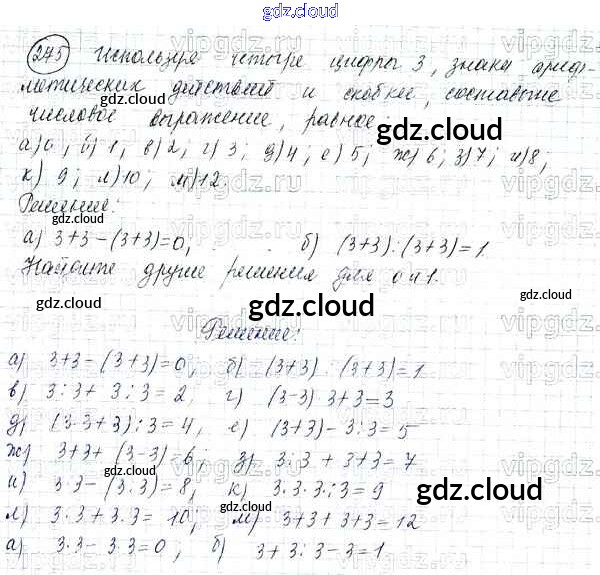 gdz.cloud
275 Используя четыре цифры 3, знаки ариф-
метических действий и скобки, составьте
числовое выражение, равное
gdz.cloud
а) 0; б) 1; в) 2; г) 3; д) 4; е) 5; ж) 6; з) 7; и) 8;
к) 9; л) 10; м) 12.
Решение:
а) 3+3-(3+3)=0, б) (3+3):(3+3)=1.
Найдите другие решения для 0 и 1.
gdz.cloud
gdz.cloud
gdz.cloud
Решение:
а) 3+3-(3+3)=0, б) (3+3):(3+3)=1
в) 3:3+3:3=2, г) (3-3)·3+3=3
д) (3·3+3):3=4, е) (3+3)-3:3=5
ж) 3+3+(3-3)=6; з) 3:3+3+3=7
и) 3·3-(3:3)=8, к) 3·3·3:3=9
л) 3·3+3:3=10, м) 3+3+3+3=12
а) 3·3-3·3=0, б) 3+3:3-3=1
gdz.cloud
gdz.cloud
gdz.cloud
gdz.cloud